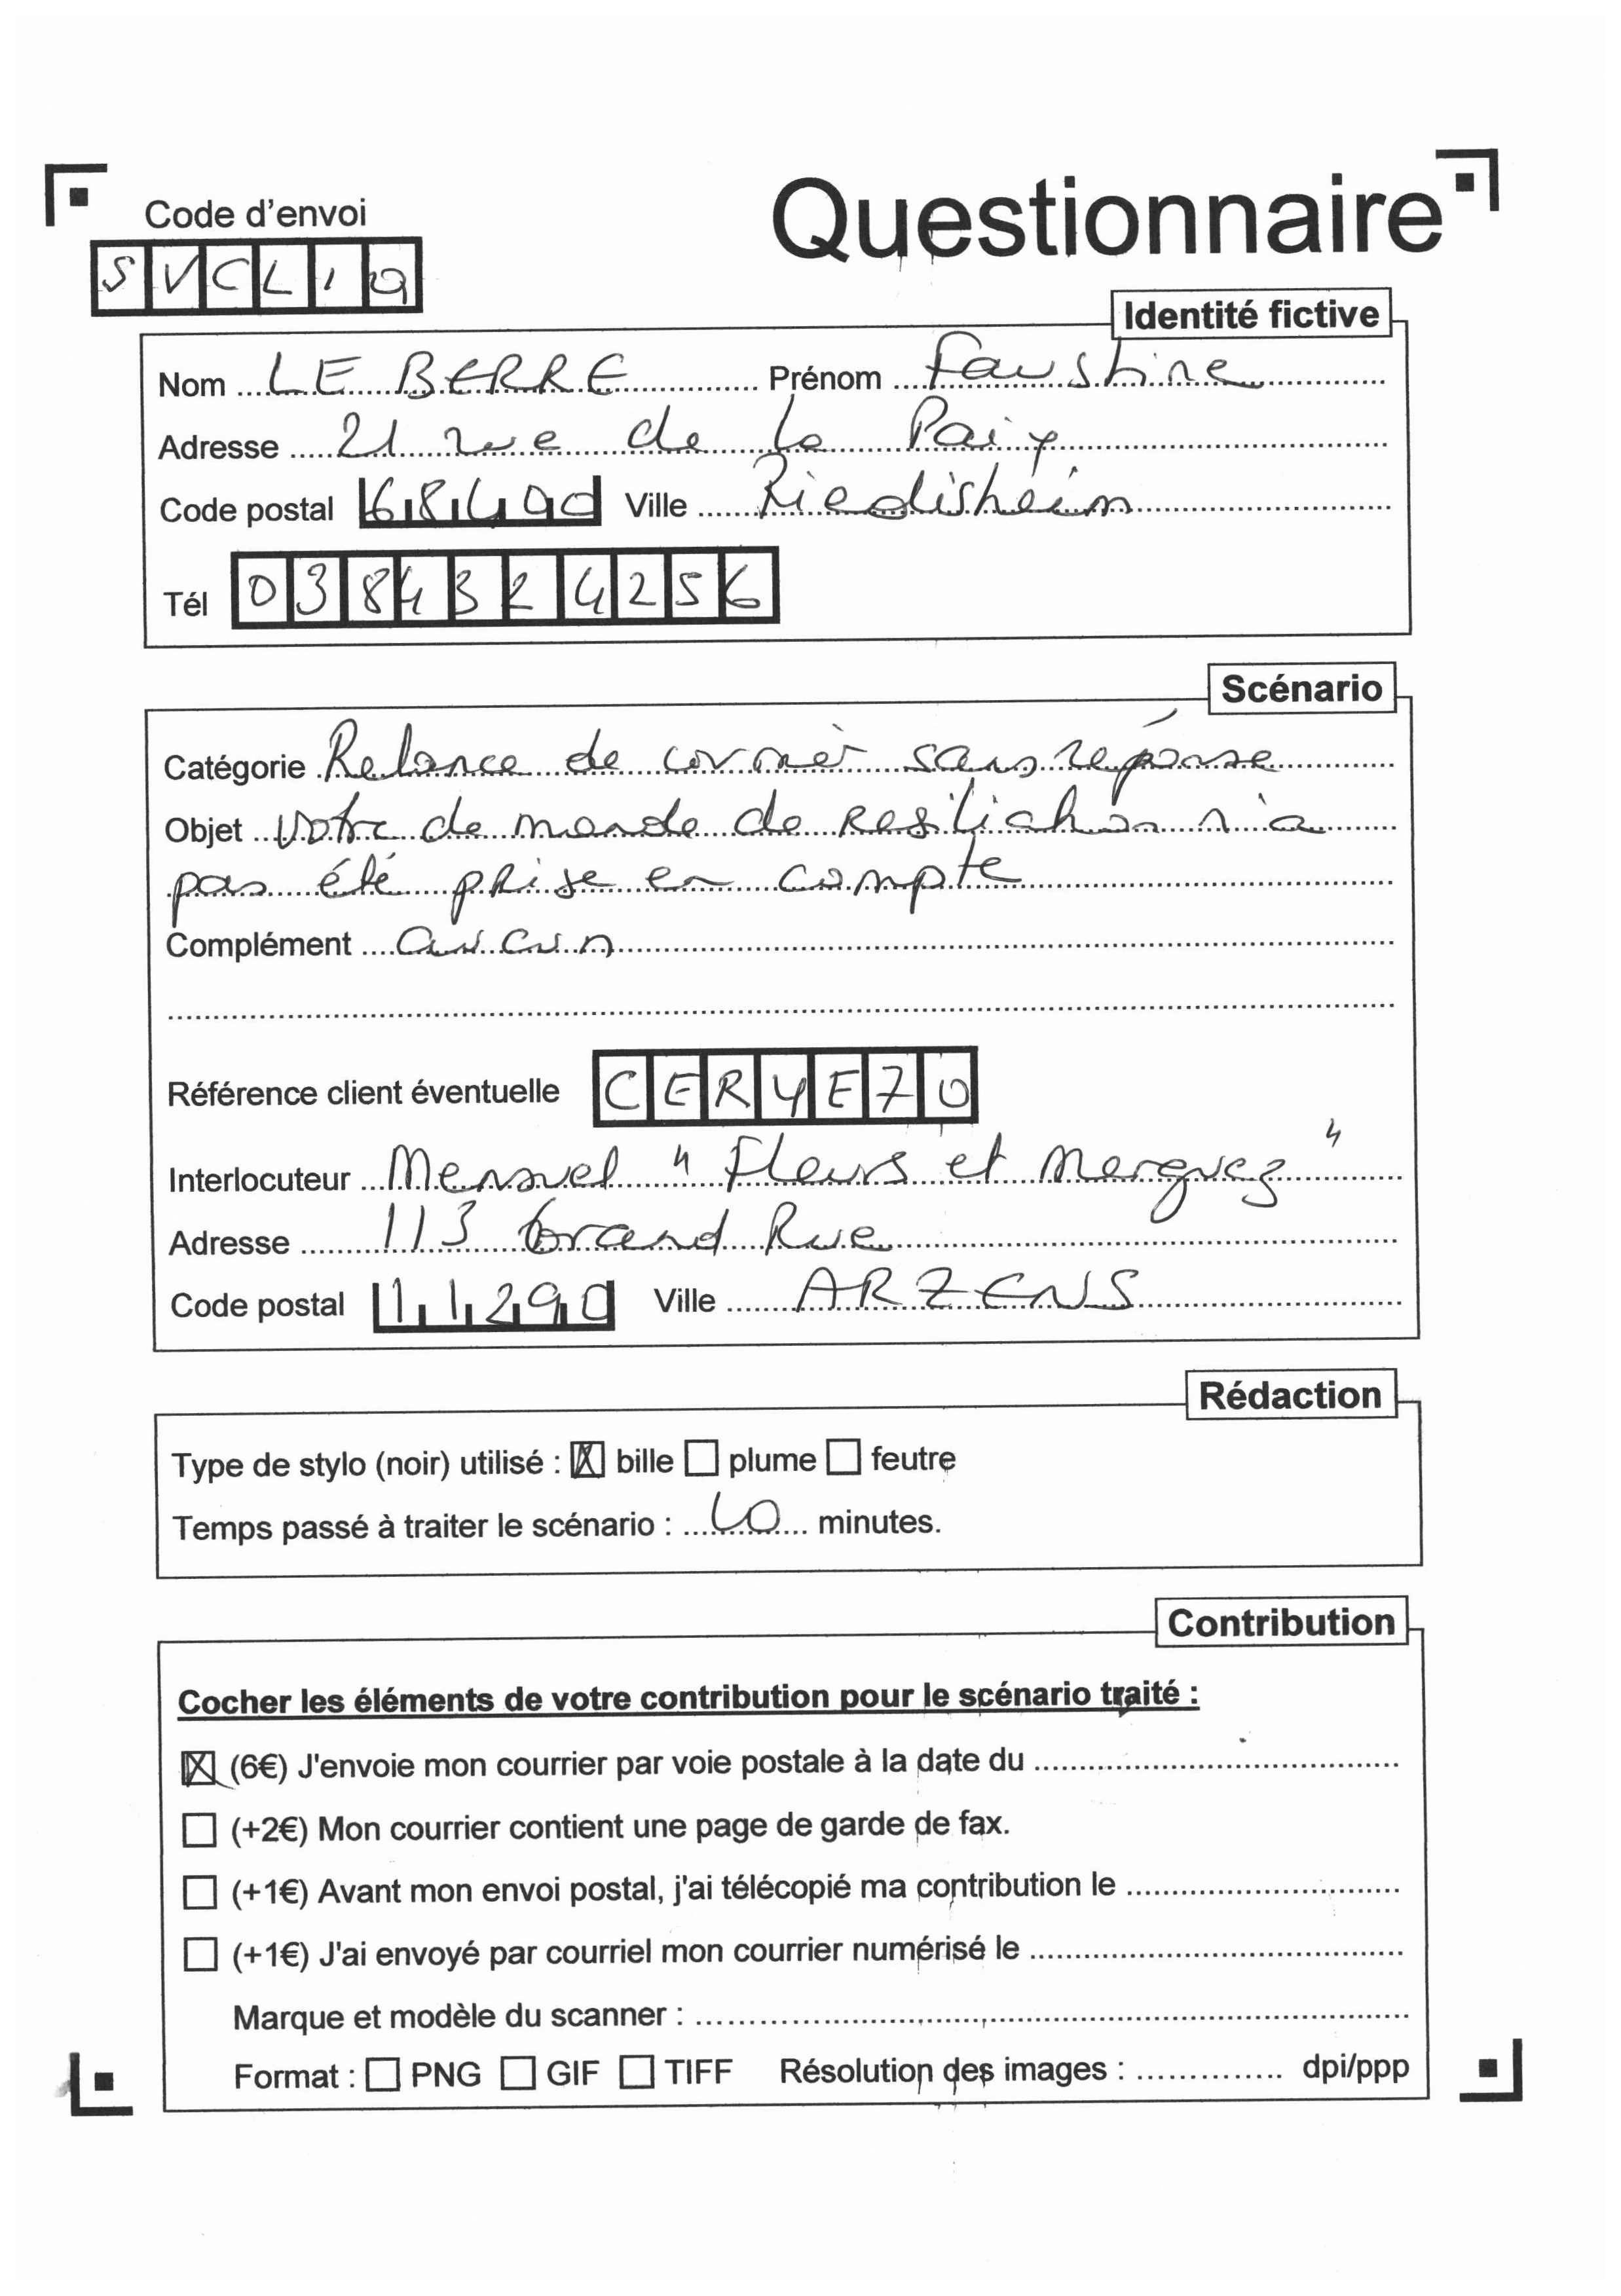 Questionnaire
Code d'envoi
SVCL19
Identité fictive
Nom LE BERRE Prénom Faustine
Adresse 21 rue de la Paix
Code postal 68400 Ville Riedisheim
Tél 0384324256
Scénario
Catégorie Relance de courrier sans réponse
Objet Votre demande de resiliation n'a
pas été prise en compte
Complément aucun
Référence client éventuelle CERYE70
Interlocuteur Mensuel "Fleurs et Merguez"
Adresse 113 Grand Rue
Code postal 11290 Ville ARZENS
Rédaction
Type de stylo (noir) utilisé : bille plume feutre
Temps passé à traiter le scénario : minutes.
Contribution
Cocher les éléments de votre contribution pour le scénario traité :
(6€) J'envoie mon courrier par voie postale à la date du
(+2€) Mon courrier contient une page de garde de fax.
(+1€) Avant mon envoi postal, j'ai télécopié ma contribution le
(+1€) J'ai envoyé par courriel mon courrier numérisé le
Marque et modèle du scanner :
Format : PNG GIF TIFF Résolution des images : dpi/ppp